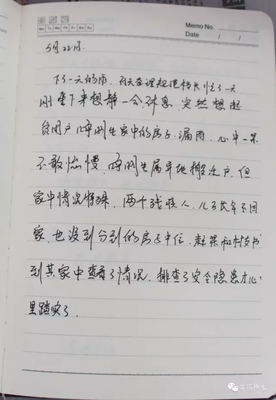 Memo No.
Mo Tu We Th Fr Sa Su
Date / /
5月22日.
下了一天的雨, 忙了一天
刚坐下来想静一会休息, 突然想起
贫困户 生家中的房子漏雨, 心中一
不敢怠慢, 生属异地搬迁户, 但
家中情况特殊, 两个残疾人, 儿子长年不回
家, 也没到分到的房子中住, 和村支书
到其家中查看了情况, 排查了安全隐患才心
里踏实了.